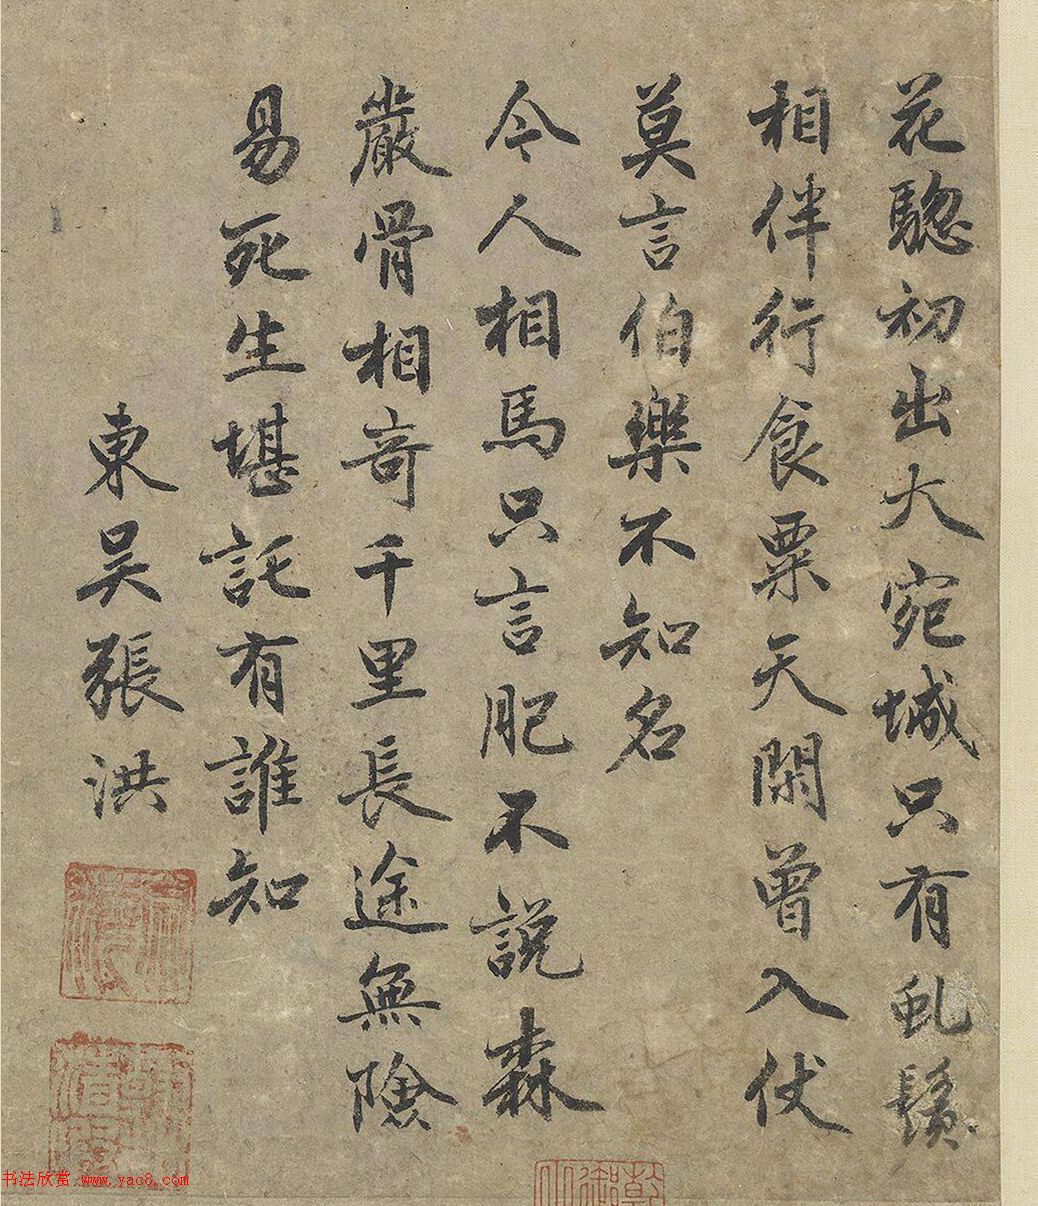 花驄初出大宛城只有虬鬚
相伴行食粟天閑曾入仗
莫言伯樂不知名
今人相馬只言肥不說森
嚴骨相奇千里長途無險
易死生堪託有誰知
東吳張洪
书法欣赏 www.yac8.com